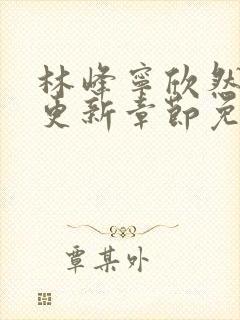 林峰寧欣然
更新章節免
覃某外